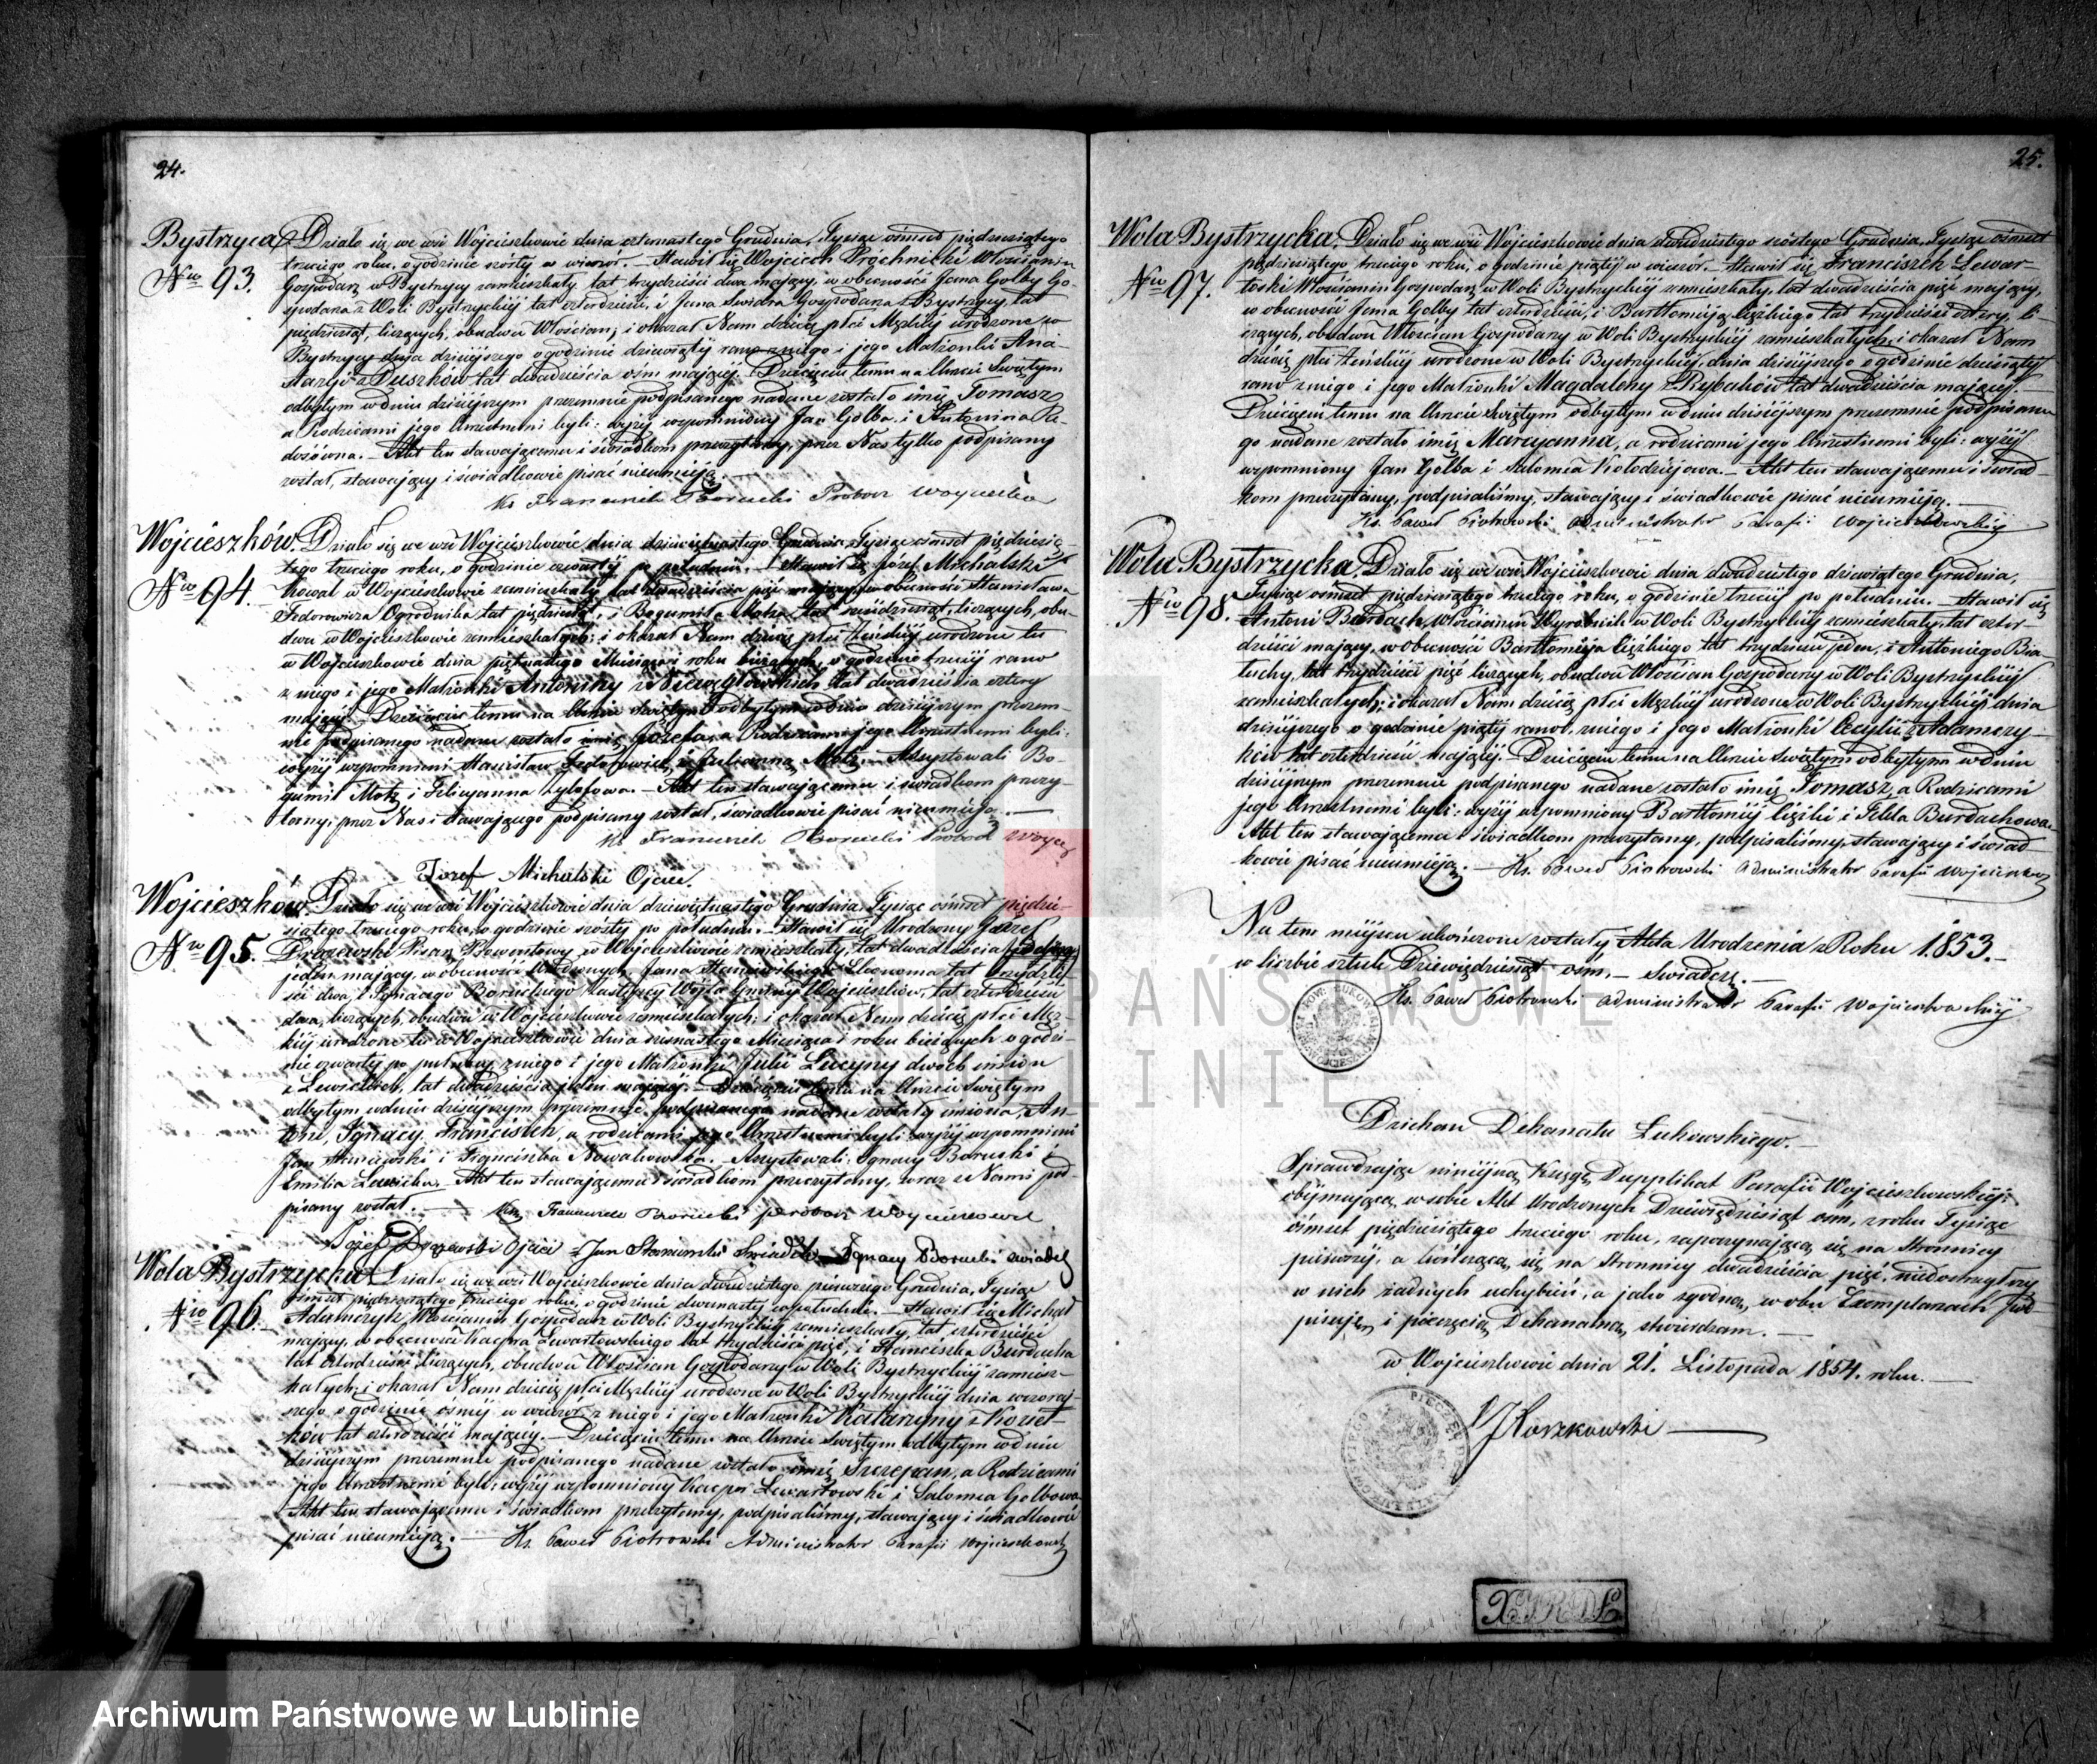 24.
Bystrzyca
Nro 93.
Działo się we wsi Wojcieszkowie dnia czternastego Grudnia, Tysiąc ośmset piędziesiątego
trzeciego roku, o godzinie szóstej w wieczór. – Stawił się Wojciech Prochnicki Włościanin
Gospodarz w Bystrzycy zamieszkały lat trzydzieści dwa mający, w obecności Jana Golby Go-
spodarza z Woli Bystrzyckiej lat czterdzieści, i Jana Świdra Gospodarza z Bystrzycy, lat
piędziesiąt, liczących, obudwu Włościan, i okazał Nam dziecię płci Męzkiej urodzone w
Bystrzycy dnia dzisiejszego o godzinie dziewiątej rano z niego i jego Małżonki Ana-
stazji z Duszków lat dwadzieścia ośm mającej. Dziecięciu temu na Chrzcie Świętym
odbytym w dniu dzisiejszym przezemnie podpisanego nadane zostało imię Tomasz
a Rodzicami jego Chrzestnemi byli: wyżej wspomniony Jan Golba i Antonina
– Akt ten stawającemu i świadkom przeczytany, przez Nas tylko podpisany
został, stawający i świadkowie pisać nieumieją. –
Ks Franciszek Borucki Proboz
Wojcieszków.
Nro 94.
Działo się we wsi Wojcieszkowie, dnia dziewiętnastego Grudnia, Tysiąc ośmset piędziesią-
tego trzeciego roku, o godzinie czwartej po południu. – Stawił się Józef Michalski
Kowal w Wojcieszkowie zamieszkały lat dwadzieścia pięć mający, w obecności Stanisława
Fedorowicza Ogrodnika lat piędziesiąt, i Bogumiła Motz, lat liczących, obu-
dwu w Wojcieszkowie zamieszkałych; i okazał Nam dziecię płci Żeńskiej urodzone tu
w Wojcieszkowie dnia piętnastego Miesiąca i roku bieżących, o godzinie trzeciej rano
z niego i jego Małżonki Antoniny z Niewęgłowskich lat dwadzieścia cztery
mającej. – Dziecięciu temu na Chrzcie Świętym odbytym w dniu dzisiejszym przezem-
nie podpisanego nadane zostało imię Józefa, a Rodzicami jego Chrzestnemi byli:
wyżej wspomnieni Stanisław Fedorowicz, i Julianna Motz. – Assystowali Bo-
gumił Motz i Felicyanna – Akt ten stawającemu i świadkom przeczy-
tany, przez Nas i stawającego podpisany został, świadkowie pisać nieumieją. –
Ks Franciszek Borucki Proboz
Jozef Michalski Ojciec.
Wojcieszków.
Nro 95.
Działo się we wsi Wojcieszkowie dnia dziewiętnastego Grudnia, Tysiąc ośmset piędzie-
siątego trzeciego roku, o godzinie szóstej po południu. – Stawił się Urodzony Józef
Pisarz Prowentowy, w Wojcieszkowie zamieszkały, lat dwadzieścia
jeden mający, w obecności Urodzonych Jana Staniewskiego Ekonoma lat trzydzie-
ści dwa, i Ignacego Boruckiego Zastępcy Wójta Gminy Wojcieszków, lat czterdzieści
dwa, liczących, obudwu w Wojcieszkowie zamieszkałych; i okazał Nam dziecię płci Męz-
kiej urodzone tu w Wojcieszkowie dnia szesnastego Miesiąca i roku bieżących o godzi-
nie czwartej po północy, z niego i jego Małżonki Julii Lucyny dwoch imion
z Lewickich, lat dwadzieścia jeden mającej. – Dziecięciu temu na Chrzcie Świętym
odbytym w dniu dzisiejszym przezemnie podpisanego nadane zostały imiona, An-
toni, Ignacy, Franciszek, a rodzicami jego Chrzestnemi byli: wyżej wspomnieni
Jan Staniewski i Franciszka Nowakowska. – Assystowali: Ignacy Borucki i
Emilia Lewicka. – Akt ten stawającemu i świadkom przeczytany, wraz z Nami pod-
pisany został. – Ks Franciszek Borucki proboz
Józef Ojciec – Jan Staniewski Świadek – Ignacy Borucki świadek
Wola Bystrzycka
Nro 96.
Działo się we wsi Wojcieszkowie dnia dwudziestego pierwszego Grudnia, Tysiąc
ośmset piędziesiątego trzeciego roku, o godzinie dwunastej w południe. – Stawił się Michał
Adamczyk Włościanin Gospodarz w Woli Bystrzyckiej zamieszkały, lat czterdzieści
mający, w obecności Kacpra Lewartowskiego lat trzydzieści pięć, i Franciszka Burdacha
lat czterdzieści, liczących, obudwu Włościan Gospodarzy w Woli Bystrzyckiej zamiesz-
kałych; i okazał Nam dziecię płci Męzkiej urodzone w Woli Bystrzyckiej dnia wczoraj-
szego o godzinie ósmej w wieczór z niego i jego Małżonki Katarzyny z Kozieł-
ków lat czterdzieści mającej. – Dziecięciu temu na Chrzcie Świętym odbytym w dniu
dzisiejszym przezemnie podpisanego nadane zostało imię Szczepan, a Rodzicami
jego Chrzestnemi byli: wyżej wspomniony Kacper Lewartowski i Salomea Golbowa
Akt ten stawającemu i świadkom przeczytany, podpisaliśmy, stawający i świadkowie
pisać nieumieją. – Ks. Paweł Piotrowski Administrator Parafii Wojcieszkowsk
25.
Wola Bystrzycka.
Nro 97.
Działo się we wsi Wojcieszkowie dnia dwudziestego szóstego Grudnia, Tysiąc ośmset
piędziesiątego trzeciego roku, o godzinie piątej w wieczór. – Stawił się Franciszek Lewar-
toski Włościanin Gospodarz, w Woli Bystrzyckiej zamieszkały, lat dwadzieścia pięć mający,
w obecności Jana Golby lat czterdzieści, i Bartłomieja Ciężkiego lat trzydzieści cztery, li-
czących, obudwu Włościan Gospodarzy w Woli Bystrzyckiej zamieszkałych; i okazał Nam
dziecię płci Żeńskiej urodzone w Woli Bystrzyckiej, dnia dzisiejszego o godzinie dziesiątej
rano z niego i jego Małżonki Magdaleny z Rybaków lat dwadzieścia mającej.
Dziecięciu temu na Chrzcie Świętym odbytym w dniu dzisiejszym przezemnie podpisane-
go nadane zostało imię Maryanna, a rodzicami jego Chrzestnemi byli: wyżej
wspomniony Jan Golba i Salomea Kołodziejowa. – Akt ten stawającemu i świad-
kom przeczytany, podpisaliśmy, stawający i świadkowie pisać nieumieją. –
Ks. Paweł Piotrowski Administrator Parafii Wojcieszkowskiej
Wola Bystrzycka.
Nro 98.
Działo się we wsi Wojcieszkowie dnia dwudziestego dziewiątego Grudnia,
Tysiąc ośmset piędziesiątego trzeciego roku, o godzinie trzeciej po południu. – Stawił się
Antoni Burdach, Włościanin Wyrobnik w Woli Bystrzyckiej zamieszkały, lat czter-
dzieści mający, w obecności Bartłomieja Ciężkiego lat trzydzieści jeden, i Antoniego Bia-
łuchy, lat trzydzieści pięć liczących, obudwu Włościan Gospodarzy w Woli Bystrzyckiej
zamieszkałych; i okazał Nam dziecię płci Męzkiej urodzone w Woli Bystrzyckiej dnia
dzisiejszego o godzinie piątej rano, z niego i jego Małżonki Cecylii z Adamczy-
ków lat czterdzieści mającej. Dziecięciu temu na Chrzcie Świętym odbytym w dniu
dzisiejszym przezemnie podpisanego nadane zostało imię Tomasz, a Rodzicami
jego Chrzestnemi byli: wyżej wspomniony Bartłomiej Ciężki i Tekla Burdachowa.
Akt ten stawającemu i świadkom przeczytany, podpisaliśmy, stawający i świad-
kowie pisać nieumieją. – Ks. Paweł Piotrowski Administrator Parafii Wojcieszkow
Na tem miejscu ukończone zostały Akta Urodzenia z Roku 1853. –
w liczbie sztuk Dziewiędziesiąt ośm. – Świadczę. –
Ks. Paweł Piotrowski Administrator Parafii Wojcieszkowskiej
Dziekan Dekanatu Łukowskiego. –
Sprawdzając niniejszą Księgę Dupplikat Parafii Wojcieszkowskiej,
obejmującą w sobie Akt Urodzonych Dziewiędziesiąt ośm, z roku Tysiąc
ośmset piędziesiątego trzeciego roku, zapoczynającą się na stronnicy
pierwszej, a kończącą się na stronnicy dwadzieścia pięć, niedostrzegłszy
w nich żadnych uchybień, a jako zgodną, w obu Exemplarzach pod-
pisuję, i pieczęcią Dekanalną stwierdzam. –
w Wojcieszkowie dnia 21. Listopada 1854. roku. –
PAŃSTWOWE
LINIE
Archiwum Państwowe w Lublinie